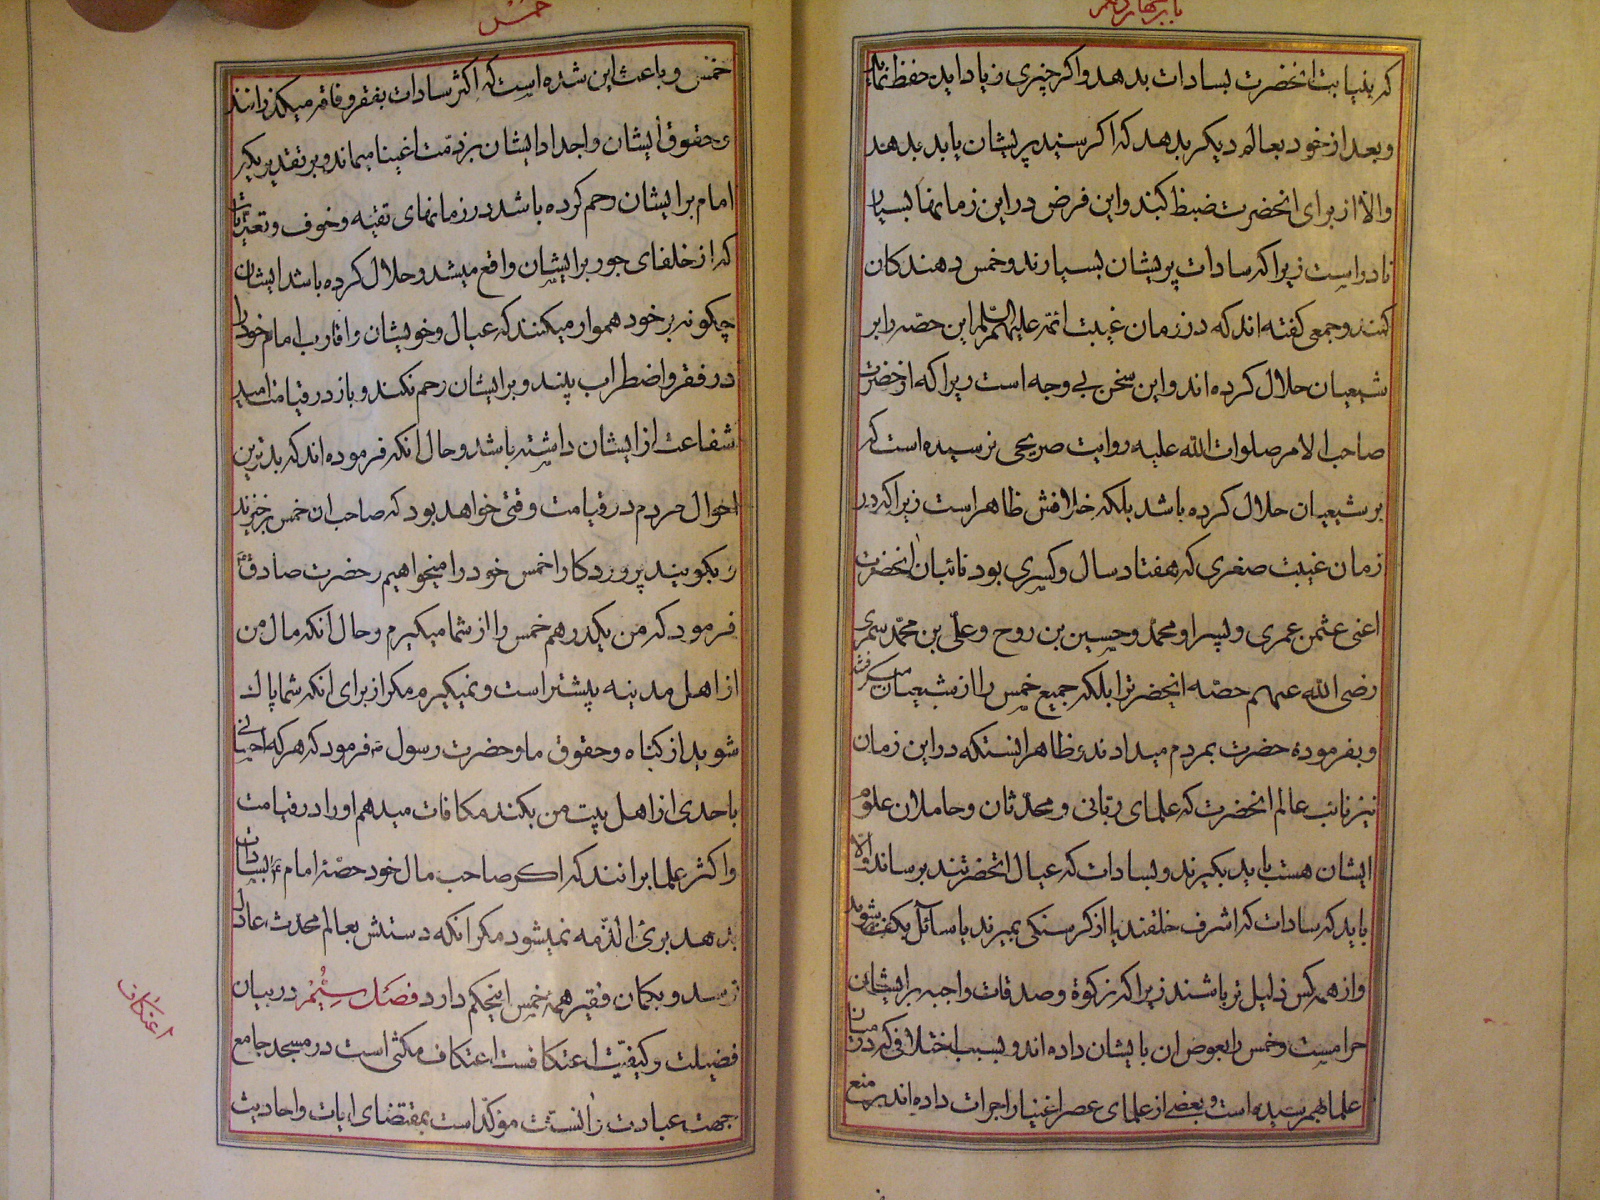 باب چهاردهم
که بنیابت انحضرت بسادات بدهد واکر چیزی زیاد اید حفظ نماید
وبعد از خود بعالم دیکر بدهد که اکر سید پریشان یابد بدهند
والا از برای انحضرت ضبط کنند واین فرض در این زمانها بسیار
نادر است زیرا که سادات پریشان بسیارند وخمس دهندکان
کمند وجمعی کفته اند که در زمان غیبت ائمه علیهم السلم این حصه را بر
شیعیان حلال کرده اند واین سخن بی وجه است زیرا که از حضرت
صاحب الامر صلوات الله علیه روایت صریحی نرسیده است که
بر شیعیان حلال کرده باشد بلکه خلافش ظاهر است زیرا که در
زمان غیبت صغری که هفتاد سال وکسری بود نائبان انحضرت
اعنی عثمن عمری وپسر او محمد وحسین بن روح وعلی بن محمد سمری
رضی الله عنهم حصه انحضرترا بلکه جمیع خمس را از شیعیان میکرفتند
وبفرموده حضرت بمردم میدادند وظاهر اینستکه در این زمان
نیز نایب عالم انحضرت که علمای ربانی ومحدثان وحاملان علوم
ایشان هستند باید بکیرند وبسادات که عیال انحضرتند برسانند والا
باید که سادات که اشرف خلقند یا از کرسنکی بمیرند یا سائل بکف شوند
واز همه کس ذلیل تر باشند زیرا که زکوة وصدقات واجبه بر ایشان
حرامست وخمس را بعوض ان بایشان داده اند وبسبب اختلافی که در میان
علما بهم رسیده است وبعضی از علمای عصر اغنیا را جرات داده اند بر منع
خمس
خمس وباعث این شده است که اکثر سادات بفقر وفاقه میکذرانند
وحقوق ایشان واجداد ایشان بر ذمت اغنیا میماند وبر تقدیریکه
امام بر ایشان رحم کرده باشد در زمانهای تقیه وخوف وتعدیات
که از خلفای جور بر ایشان واقع میشد وحلال کرده باشد ایشان
چکونه بر خود هموار میکنند که عیال وخویشان واقارب امام خود را
در فقر واضطراب بینند وبر ایشان رحم نکنند وباز در قیامت امید
شفاعت از ایشان داشته باشد وحال انکه فرموده اند که بدترین
احوال مردم در قیامت وقتی خواهد بود که صاحبان خمس برخیزند
وبکویند پروردکارا خمس خود را میخواهیم وحضرت صادق ع
فرمود که من یکدرهم خمس را از شما میکیرم وحال انکه مال من
از اهل مدینه بیشتر است ونمیکیرم مکر از برای انکه شما پاک
شوید از کناه وحقوق ما وحضرت رسول ص فرمود که هر که احسانی
باحدی از اهل بیت من بکند مکافات میدهم او را در قیامت
واکثر علما برانند که اکر صاحب مال خود حصه امام ع را بسادات
بدهد برئ الذمه نمیشود مکر انکه دستش بعالم محدث عادل
نرسد وبکمان فقیر همه خمس اینحکم دارد فصل ششم در بیان
فضیلت وکیفیت اعتکافست اعتکاف مکثی است در مسجد جامع
جهت عبادت وان سنت مؤکد است بمقتضای ایات واحادیث
اعتکاف